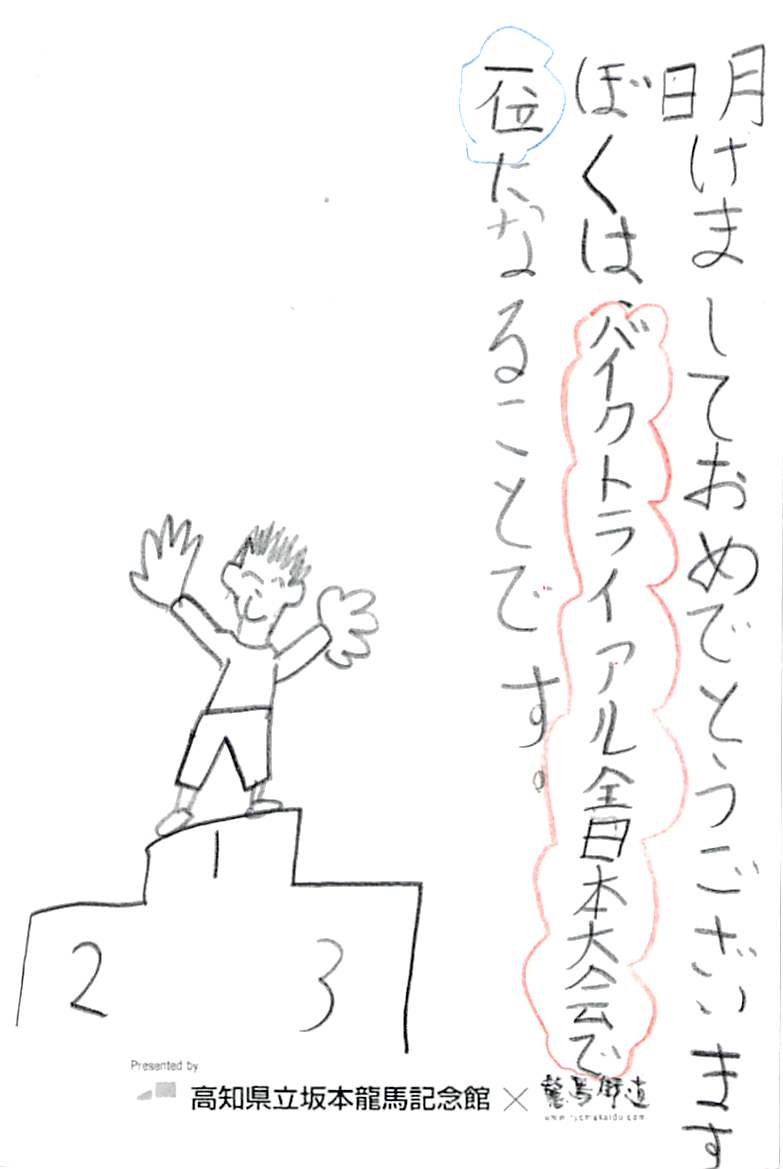 明けましておめでとうございます
ぼくは、バイクトライアル全日本大会で
一位になることです。
1
2
3
Presented by
高知県立坂本龍馬記念館×龍馬街道
www.ryomakaido.com